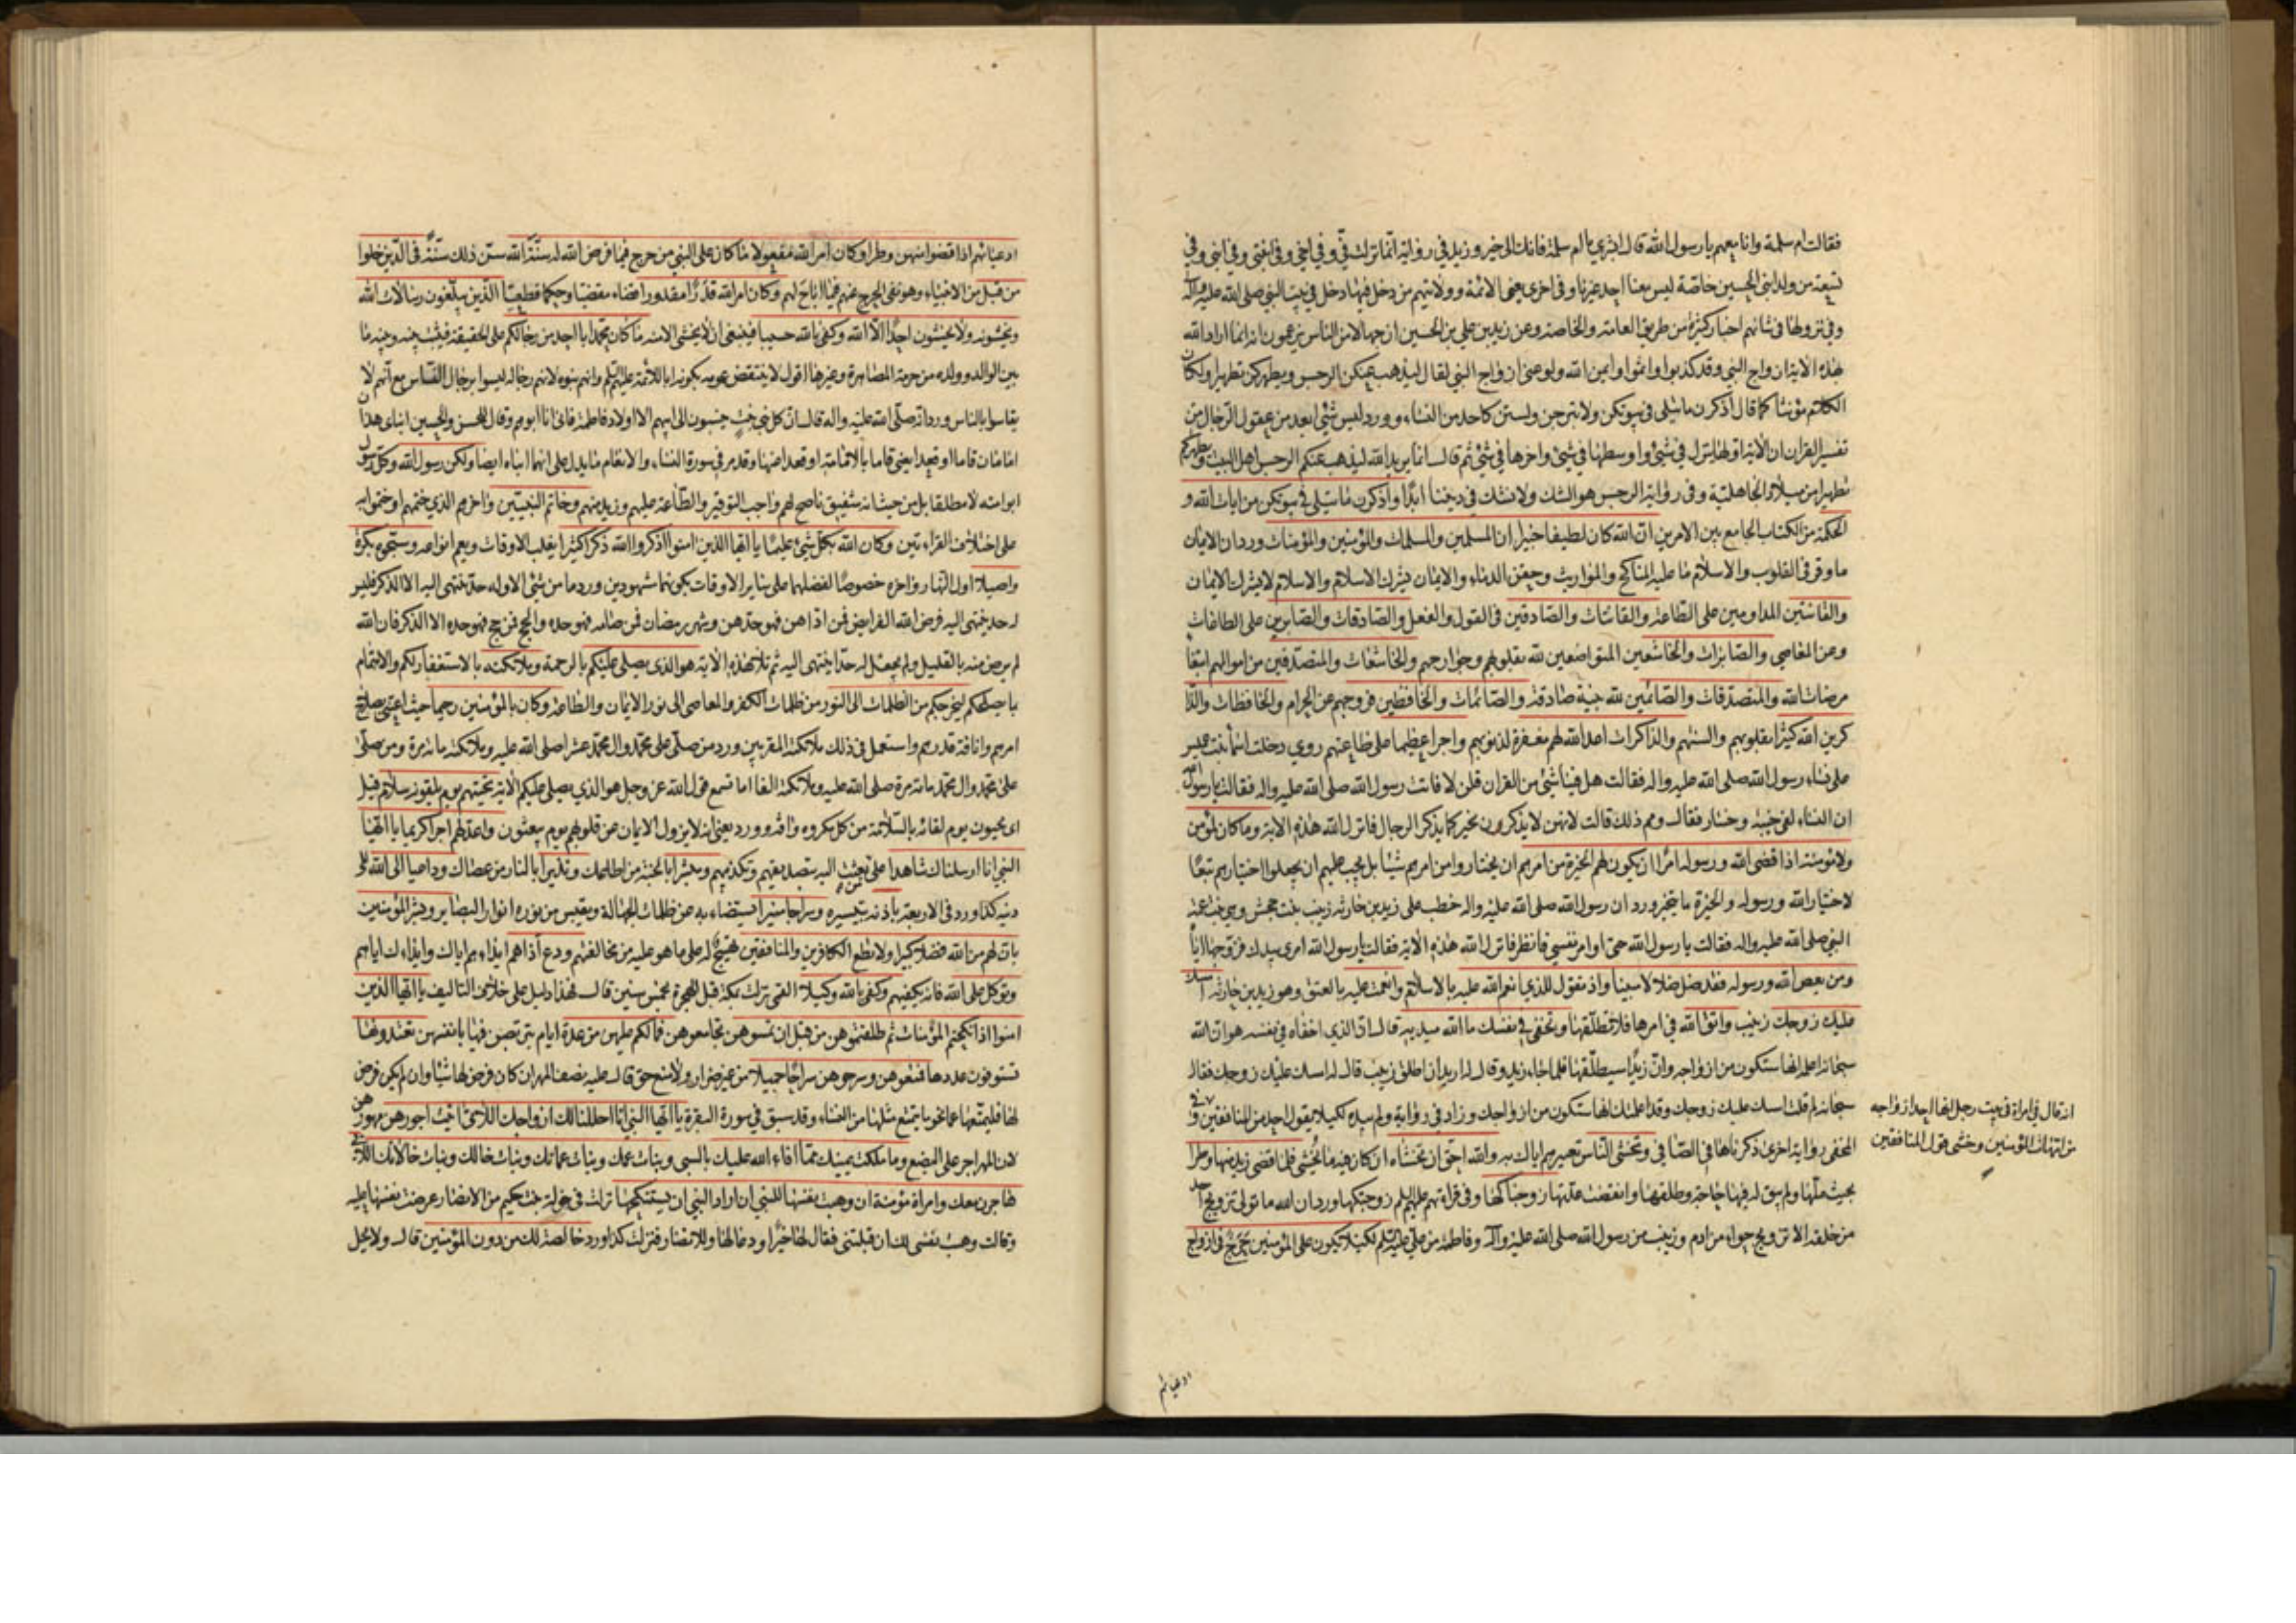 فقالت ام سلمة وانا معهم يا رسول الله قال ابشري يا ام سلمة فانك الى خير وزيد في رواية انما نزلت في وفي اخي وفي ابنتي وفي ابني وفي
تسعة من ولد ابني الحسين خاصة ليس معنا احد غيرنا وفي اخرى يعني الائمة وولايتهم من دخل فيها دخل في بيت النبي صلى الله عليه وآله
وفي نزولها في شانهم اخبار كثيرة من طريق العامة والخاصة وعن زيد بن علي بن الحسين ان جهالا من الناس يزعمون انه انما اراد الله
بهذه الاية ازواج النبي وقد كذبوا واثموا وايمن الله ولو عنى ازواج النبي لقال ليذهب عنكن الرجس ويطهركن تطهيرا ولكان
الكلام مؤنثا كما قال اذكرن ما يتلى في بيوتكن ولا تبرجن ولستن كاحد من النساء وورد ليس شيء ابعد من عقول الرجال من
تفسير القران ان الاية اولها ينزل في شيء واوسطها في شيء واخرها في شيء ثم قال انما يريد الله ليذهب عنكم الرجس اهل البيت ويطهركم
تطهيرا من ميلاد الجاهلية وفي رواية الرجس هو الشك ولا نشك في ديننا ابدا واذكرن ما يتلى في بيوتكن من ايات الله و
الحكمة من الكتاب الجامع بين الامرين ان الله كان لطيفا خبيرا ان المسلمين والمسلمات والمؤمنين والمؤمنات ورد ان الايمان
ما وقر في القلوب والاسلام ما عليه المناكح والمواريث وحقن الدماء والايمان يشرك الاسلام والاسلام لا يشرك الايمان
والقانتين المداومين على الطاعة والقانتات والصادقين في القول والفعل والصادقات والصابرين على الطاعات
وعن المعاصي والصابرات والخاشعين المتواضعين لله بقلوبهم وجوارحهم والخاشعات والمتصدقين من اموالهم ابتغا
مرضات الله والمتصدقات والصائمين لله بنية صادقة والصائمات والحافظين فروجهم عن الحرام والحافظات والذا
كرين الله كثيرا بقلوبهم والسنتهم والذاكرات اعد الله لهم مغفرة لذنوبهم واجرا عظيما على طاعتهم روي دخلت اسماء بنت عميس
على نساء رسول الله صلى الله عليه واله فقالت هل فينا شيء من القران قلن لا فاتت رسول الله صلى الله عليه واله فقالت يا رسول الله
ان النساء لفي خيبة وخسار فقال ومم ذلك قالت لانهن لا يذكرون بخير كما يذكر الرجال فانزل الله هذه الاية وما كان لمؤمن
ولا مؤمنة اذا قضى الله ورسوله امرا ان يكون لهم الخيرة من امرهم ان يختاروا من امرهم شيئا بل يجب عليهم ان يجعلوا اختيارهم تبعا
لاختيار الله ورسوله والخيرة ما يتخير ورد ان رسول الله صلى الله عليه واله خطب على زيد بن حارثه زينب بنت جحش وهي بنت عمة
النبي صلى الله عليه واله فقالت يا رسول الله حتى اوامر نفسي فانظر فانزل الله هذه الاية فقالت يا رسول الله امري بيدك فزوجها اياه
ومن يعص الله ورسوله فقد ضل ضلالا مبينا واذ تقول للذي انعم الله عليه بالاسلام وانعمت عليه بالعتق وهو زيد بن حارثه امسك
عليك زوجك زينب واتق الله في امرها فلا تطلقها وتخفي في نفسك ما الله مبديه قال ان الذي اخفاه في نفسه هو ان الله
سبحانه اعلمه انها ستكون من ازواجه وان زيدا سيطلقها فلما جاء زيد وقال له اريد ان اطلق زينب قال له امسك عليك زوجك فقال
سبحانه لم قلت امسك عليك زوجك وقد اعلمتك انها ستكون من ازواجك وزاد في رواية ولم يبده لكيلا يقول احد من المنافقين و
المخفي رواية اخرى ذكرناها في الصافي وتخشى الناس تعييرهم اياك به والله احق ان تخشاه ان كان فيه ما يخشى فلما قضى زيد منها وطرا
بحيث ملها ولم يبق له فيها حاجة وطلقها وانقضت عدتها زوجناكها وفي قراءتهم عليهم السلم زوجتكها ورد ان الله ما تولى تزويج احد
من خلقه الا تزويج حواء من ادم وزينب من رسول الله صلى الله عليه وآله وفاطمة من علي عليه السلم لكيلا يكون على المؤمنين حرج في ازواج
انه قال في امراة في بيت رجل انها احد ازواجه
من امهات المؤمنين وخشي قول المنافقين
ادعيائهم
ادعيائهم اذا قضوا منهن وطرا وكان امر الله مفعولا ما كان على النبي من حرج فيما فرض الله له سنة الله سن ذلك سنة في الذين خلوا
من قبل من الانبياء وهو نفي الحرج عنهم فيما اباح لهم وكان امر الله قدرا مقدورا قضاء مقضيا وحكما قطعيا الذين يبلغون رسالات الله
ويخشونه ولا يخشون احدا الا الله وكفى بالله حسيبا فينبغي ان لا يخشى الا منه ما كان محمد ابا احد من رجالكم على الحقيقة فيثبت بينه وبينه ما
بين الوالد وولده من حرمة المصاهرة وغيرها اقول لا ينتقض عمومه بكونه ابا للائمة عليهم السلم وانهم بنوه لانهم رجاله ليسوا برجال الناس مع انهم لا
يقاسوا بالناس ورد انه صلى الله عليه واله قال ان كل بني بنت ينسبون الى ابيهم الا اولاد فاطمة فاني انا ابوهم وقال للحسن والحسين ابناي هذان
امامان قاما او قعدا يعني قاما بالامامة او قعدا عنها وقد مر في سورة النساء والانعام ما يدل على انهما ابناه ايضا ولكن رسول الله وكل رسول
ابو امته لا مطلقا بل من حيث انه شفيق ناصح لهم واجب التوقير والطاعة عليهم وزيد منهم وخاتم النبيين واخرهم الذي ختمهم او ختموا به
على اختلاف القراءتين وكان الله بكل شيء عليما يا ايها الذين امنوا اذكروا الله ذكرا كثيرا يغلب الاوقات ويعم انواعه وسبحوه بكرة
واصيلا اول النهار واخره خصوصا لفضلهما على ساير الاوقات بكونهما مشهودين ورد ما من شيء الا وله حد ينتهي اليه الا الذكر فليس
له حد ينتهي اليه فرض الله الفرايض فمن اداهن فهو حدهن وشهر رمضان فمن صامه فهو حده والحج فمن حج فهو حده الا الذكر فان الله
لم يرض منه بالقليل ولم يجعل له حدا ينتهي اليه ثم تلا هذه الاية هو الذي يصلي عليكم بالرحمة وملائكته بالاستغفار لكم والاهتمام
بما يصلحكم ليخرجكم من الظلمات الى النور من ظلمات الكفر والمعاصي الى نور الايمان والطاعة وكان بالمؤمنين رحيما حيث اعتنى بصلاح
امرهم وانافة قدرهم واستعمل في ذلك ملائكته المقربين ورد من صلى على محمد وال محمد عشرا صلى الله عليه وملائكته مائة مرة ومن صلى
على محمد وال محمد مائة مرة صلى الله عليه وملائكته الفا اما تسمع قول الله عز وجل هو الذي يصلي عليكم الاية تحيتهم يوم يلقونه سلام قيل
اي يحيون يوم لقائه بالسلامة من كل مكروه وافة وورد يعني انه لا يزول الايمان عن قلوبهم يوم يبعثون واعد لهم اجرا كريما يا ايها
النبي انا ارسلناك شاهدا على من بعثت اليه بتصديقهم وتكذيبهم ومبشرا بالجنة من اطاعك ونذيرا بالنار من عصاك وداعيا الى الله الى
دينه كذا ورد في الاربعة باذنه بتيسيره وسراجا منيرا يستضاء به عن ظلمات الجهالة ويقتبس من نوره انوار البصاير وبشر المؤمنين
بان لهم من الله فضلا كبيرا ولا تطع الكافرين والمنافقين تهييج له على ما هو عليه من مخالفتهم ودع اذاهم ايذاءهم اياك وايذاءك اياهم
وتوكل على الله فانه يكفيهم وكفى بالله وكيلا القمي نزلت بمكة قبل الهجرة بخمس سنين قال فهذا دليل على خلاف التاليف يا ايها الذين
امنوا اذا نكحتم المؤمنات ثم طلقتموهن من قبل ان تمسوهن تجامعوهن فما لكم عليهن من عدة ايام يتربصون فيها بانفسهن تعتدونها
تستوفون عددها فمتعوهن وسرحوهن سراحا جميلا من غير ضرار ولا منع حق قال عليه نصف المهر ان كان فرض لها شيئا وان لم يكن فرض
لها فليمتعها على نحو ما يتمتع مثلها من النساء وقد سبق في سورة البقرة يا ايها النبي انا احللنا لك ازواجك اللاتي اتيت اجورهن مهورهن
لان المهر اجر على البضع وما ملكت يمينك مما افاء الله عليك بالسبي وبنات عمك وبنات عماتك وبنات خالك وبنات خالاتك اللاتي
هاجرن معك وامراة مؤمنة ان وهبت نفسها للنبي ان اراد النبي ان يستنكحها نزلت في خولة بنت حكيم من الانصار عرضت نفسها عليه
وقالت وهبت نفسي لك ان قبلتني فقال لها خيرا ودعا لها وللانصار فنزلت كذا ورد خالصة لك من دون المؤمنين قال ولا يحل